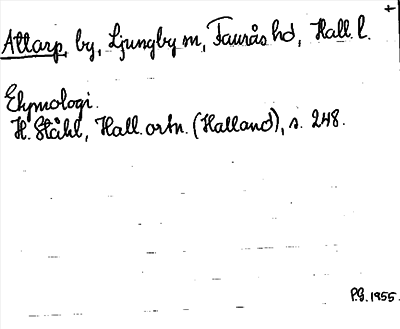 +
Attarp, by, Ljungby sn, Faurås hd, Hall. l.
Etymologi.
H. Ståhl, Hall. ortn. (Halland), s. 248.
P.G. 1955.